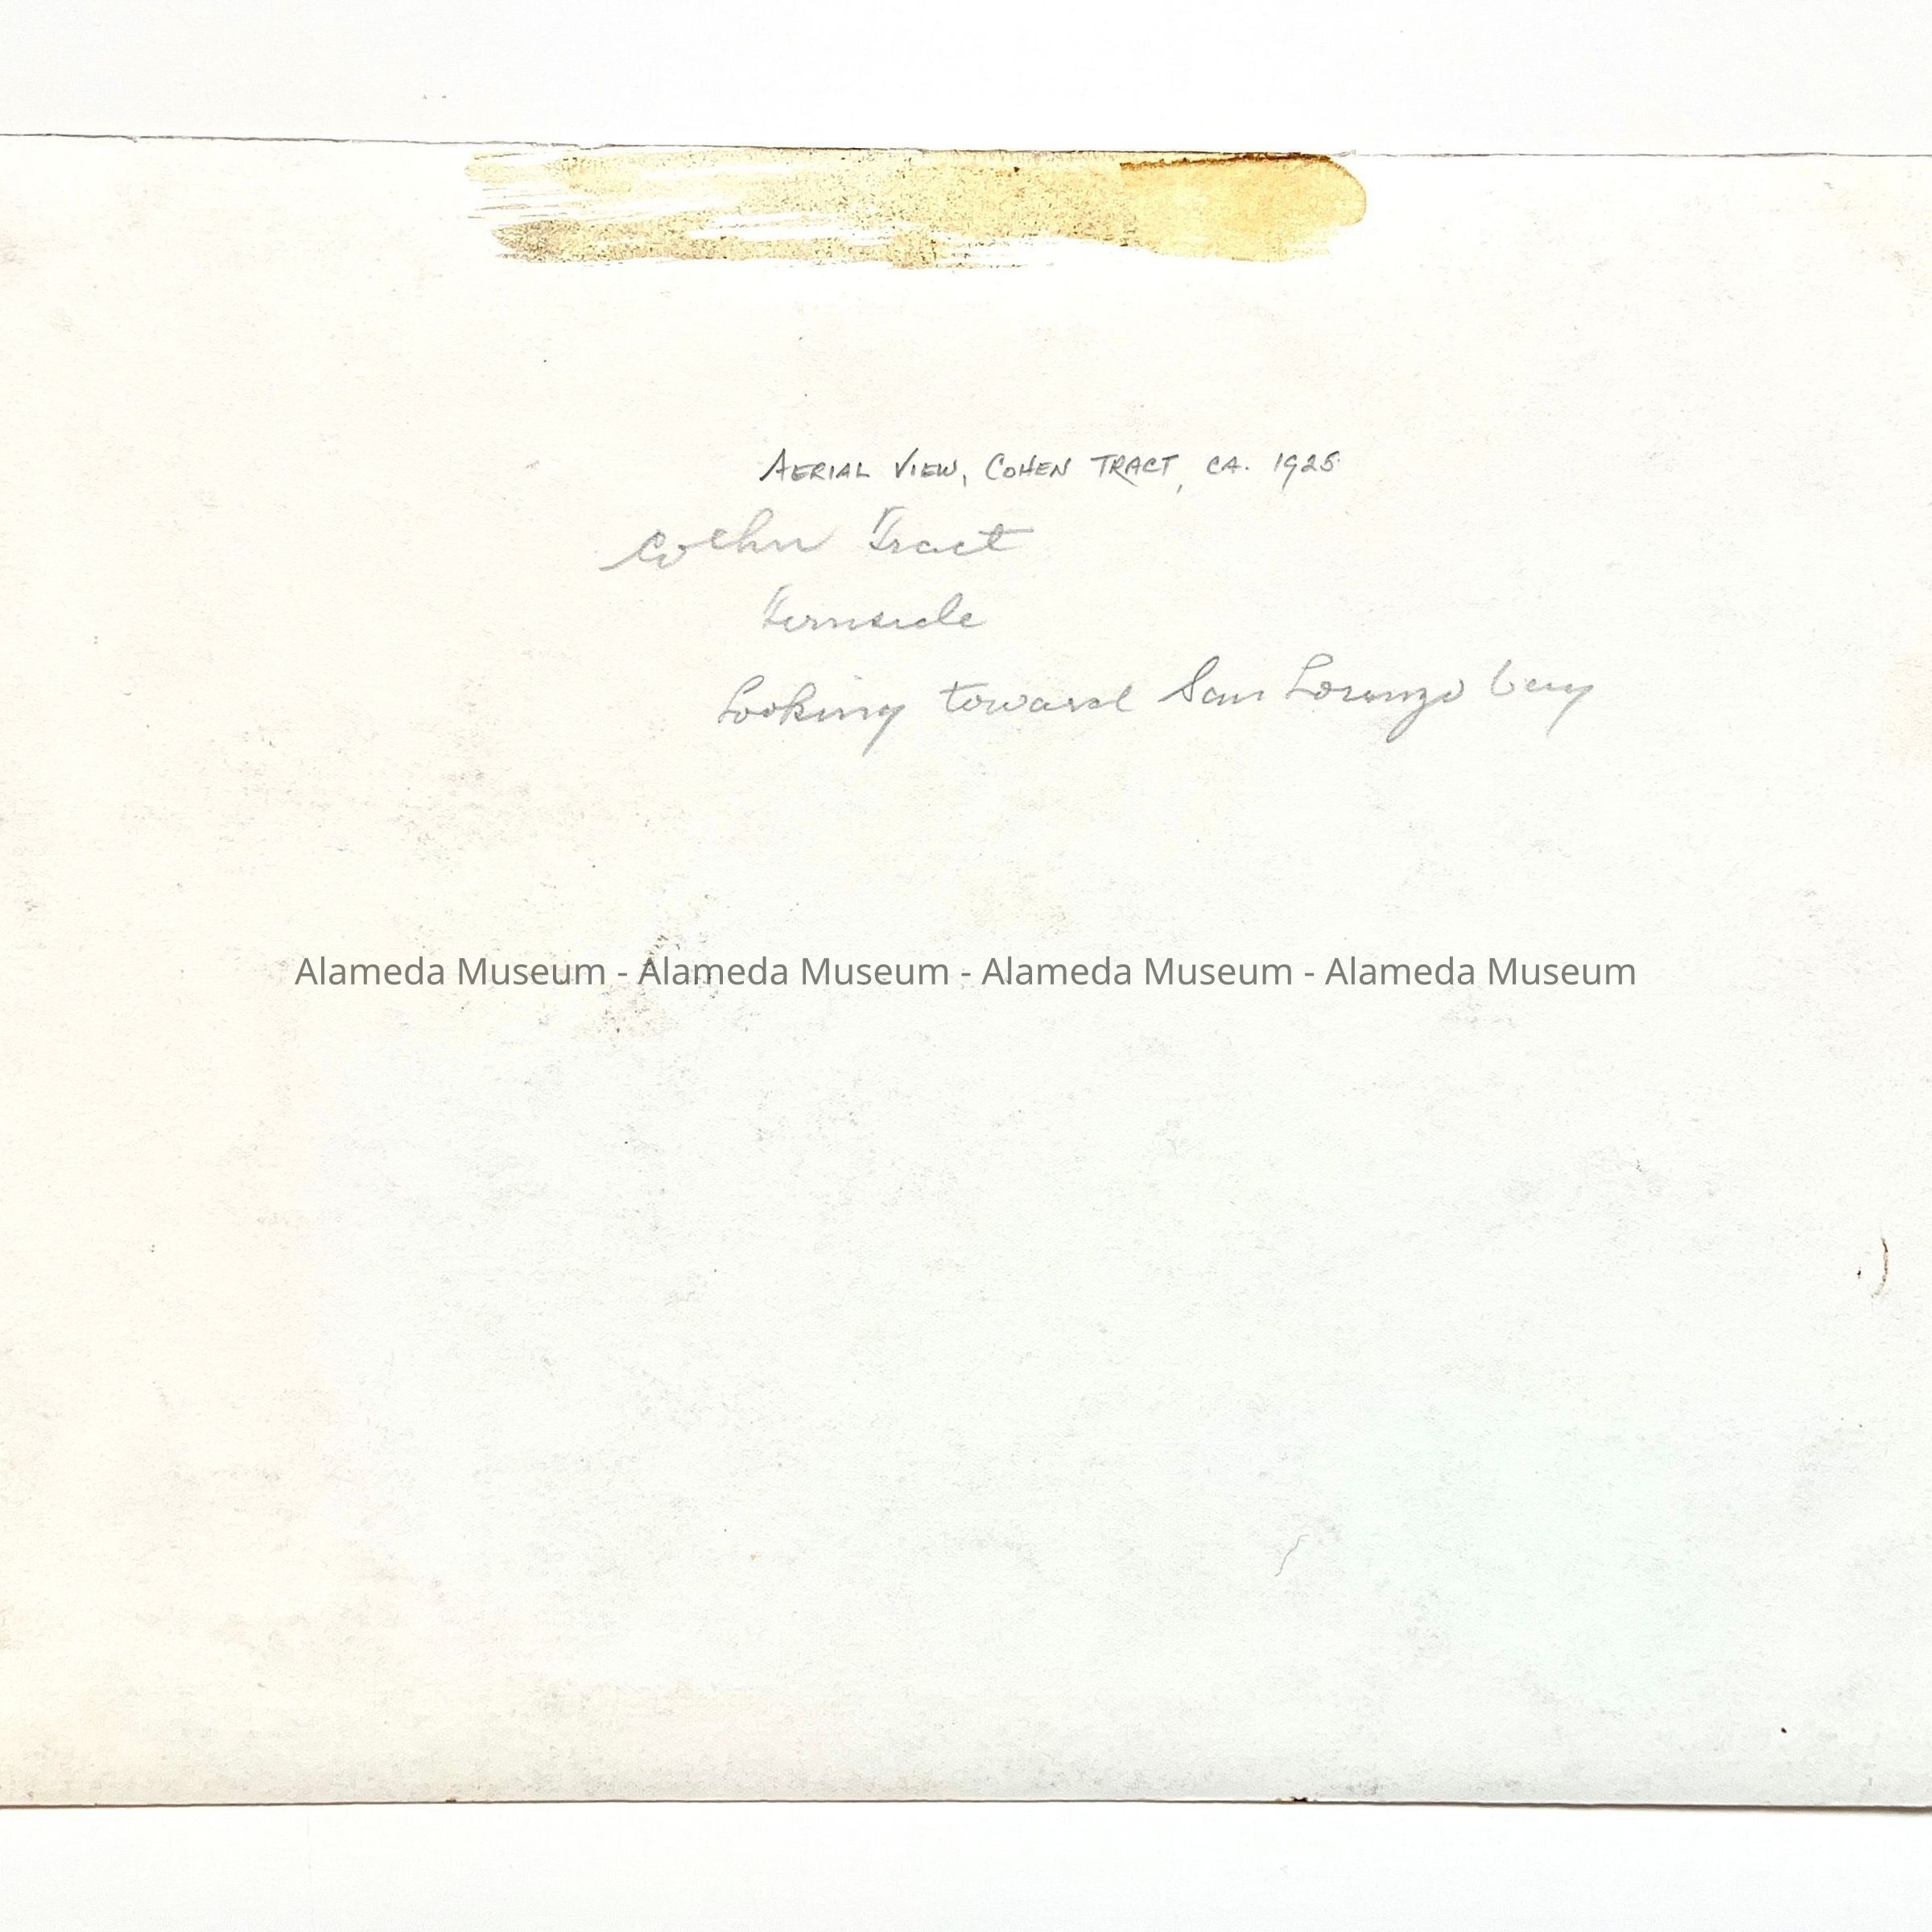 AERIAL VIEW, COHEN TRACT, CA. 1925
Coehn Tract
Fernside
Looking toward San Lorenzo bay
Alameda Museum - Alameda Museum - Alameda Museum - Alameda Museum